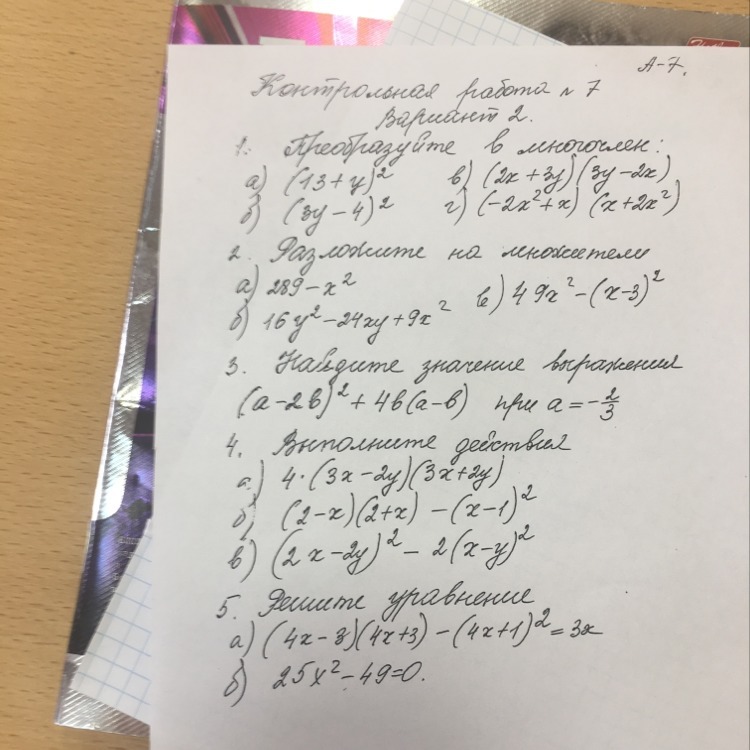 А-7.
Контрольная работа № 7
Вариант 2.
1. Преобразуйте в многочлен:
а) (13+y)² в) (2x+3y)(3y-2x)
б) (3y-4)² г) (-2x²+x) (x+2x²)
2. Разложите на множители
а) 289-x² в) 49x²-(x-3)²
б) 16y²-24xy+9x²
3. Найдите значение выражения
(a-2b)²+4b(a-b) при a=-2/3
4. Выполните действия
а) 4·(3x-2y)(3x+2y)
б) (2-x)(2+x)-(x-1)²
в) (2x-2y)²-2(x-y)²
5. Решите уравнение
а) (4x-3)(4x+3)-(4x+1)²=3x
б) 25x²-49=0.